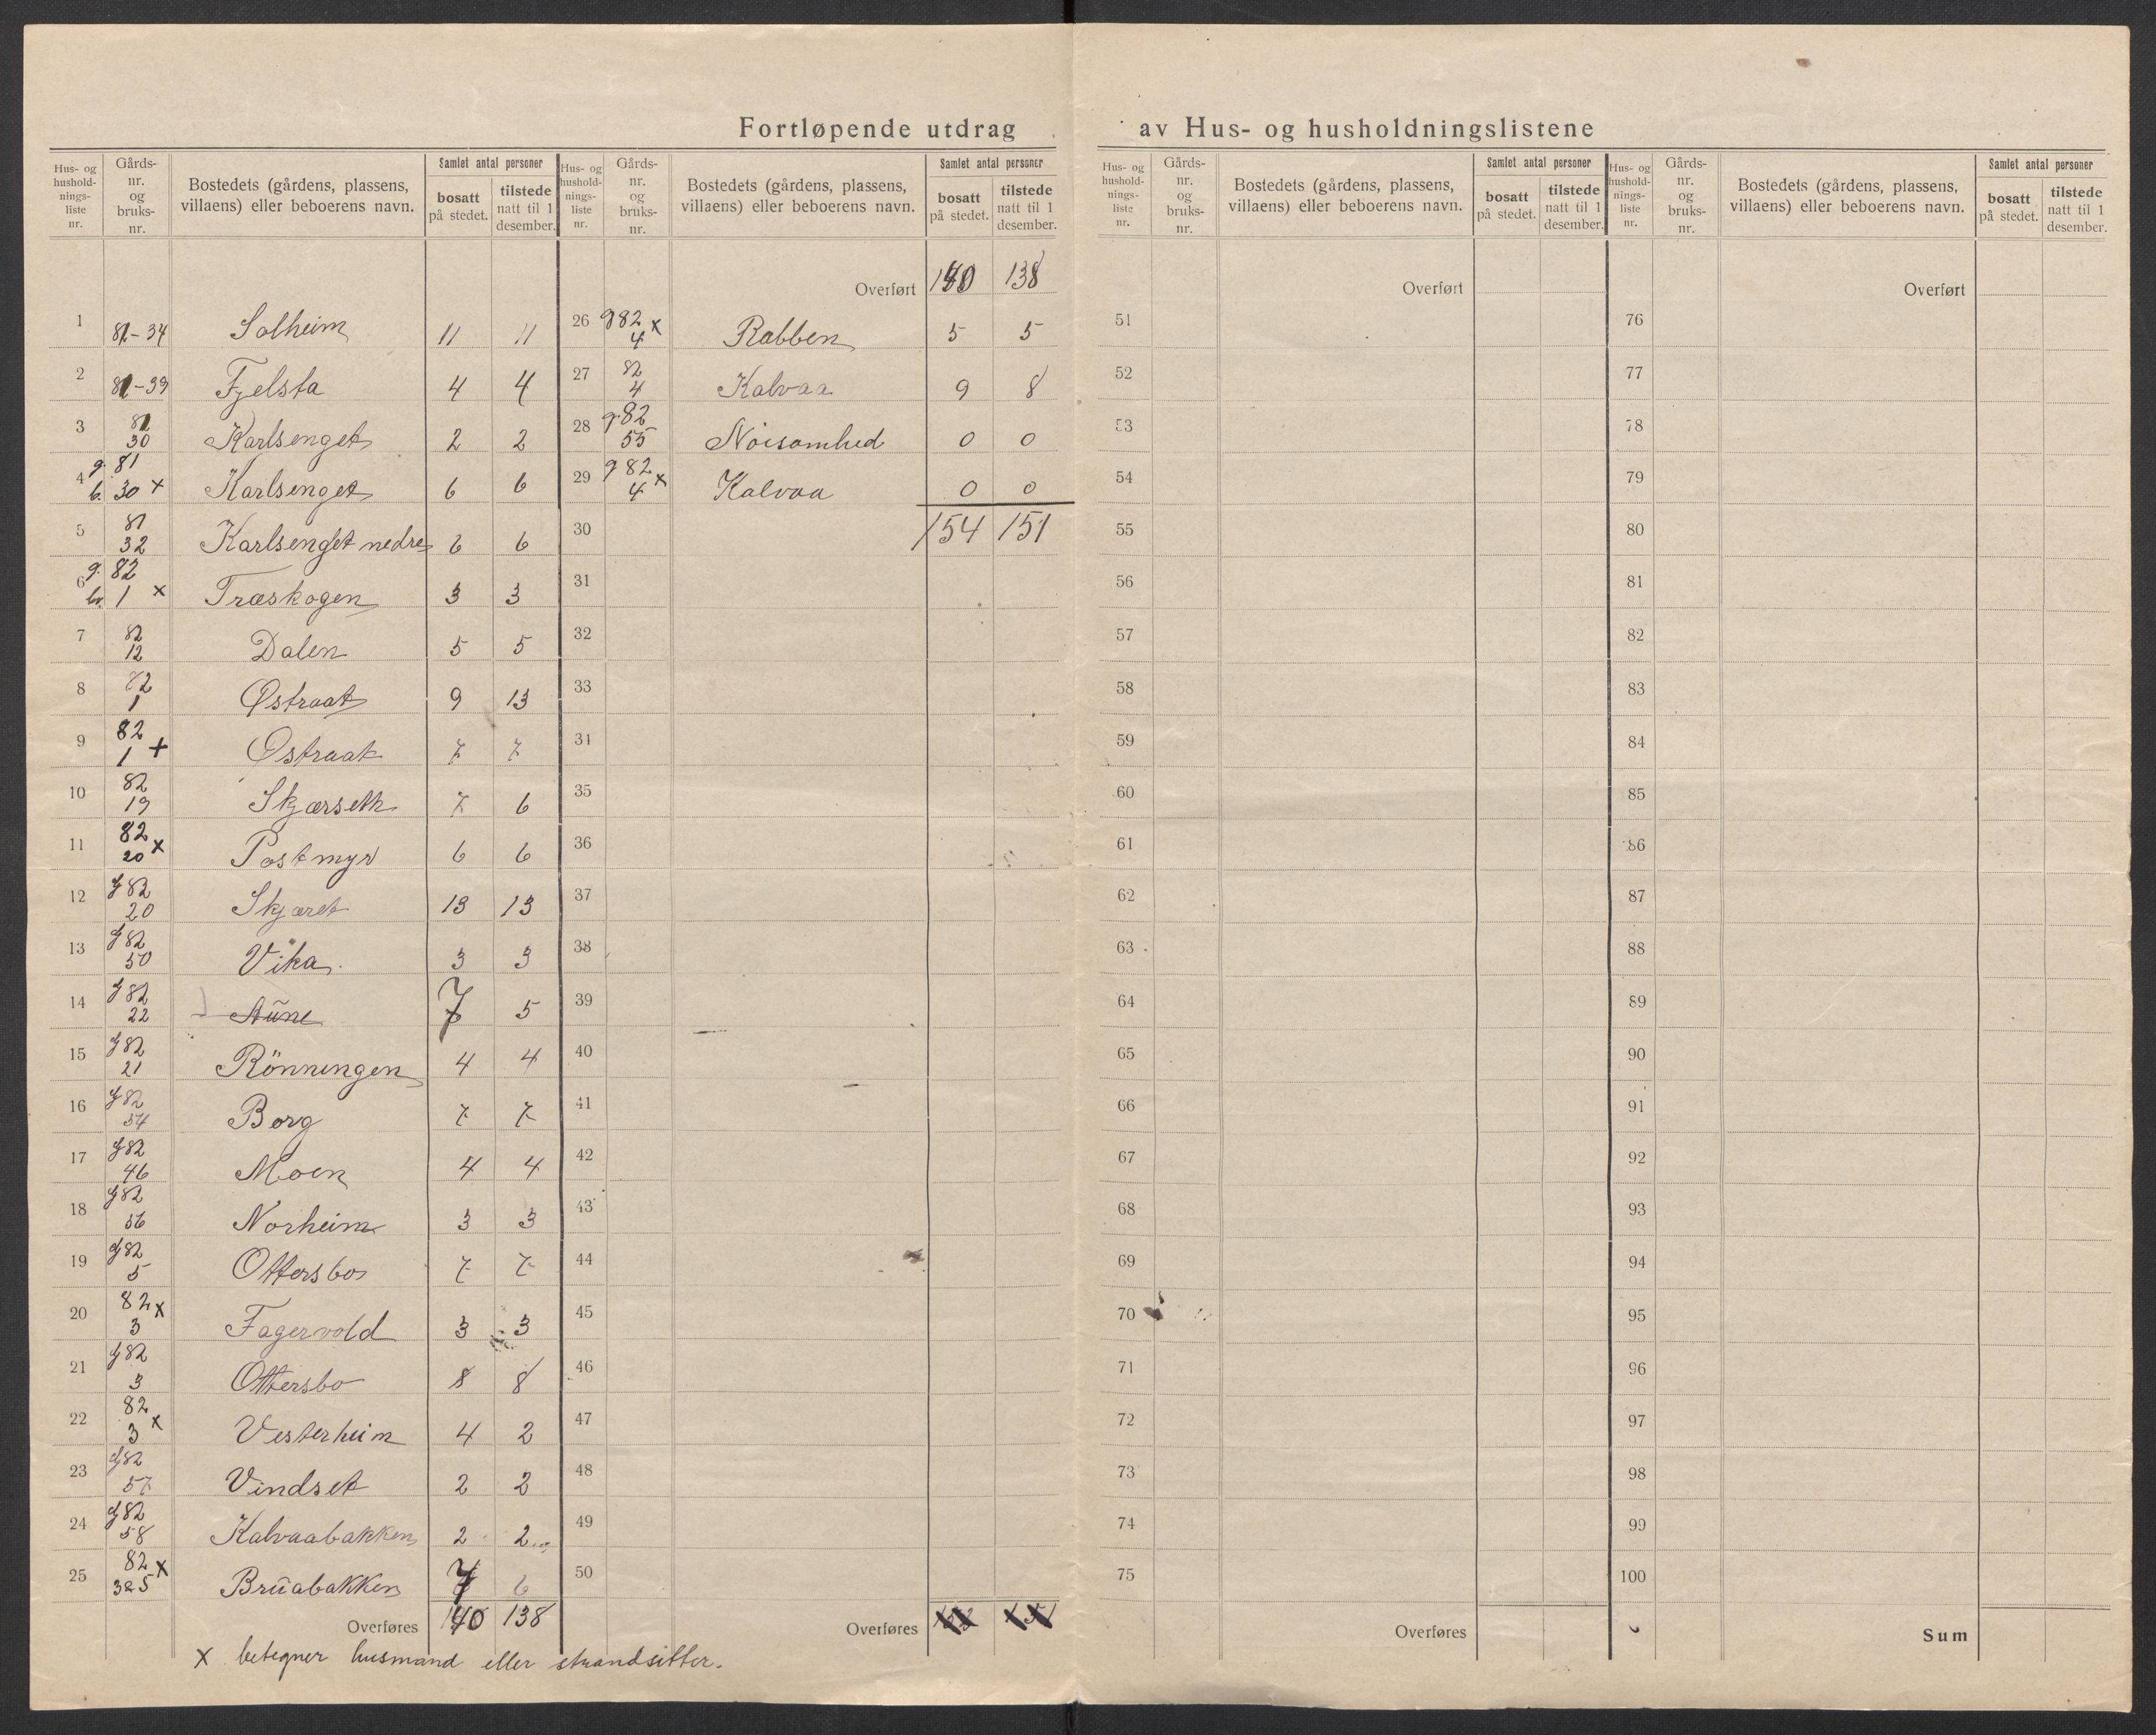 Fortløpende utdrag av Hus- og husholdningslistene
Hus- og husholdnings- liste nr. Gårds- nr. og bruks- nr. Bostedets (gårdens, plassens, villaens) eller beboerens navn. Samlet antal personer bosatt på stedet. tilstede natt til 1 desember.
1 81-34 Solheim 11 11
2 81-39 Fjelsta 4 4
3 81 30 Karlsenget 2 2
4 g. 81 b. 30 x Karlsenget 6 6
5 81 32 Karlsenget nedre 6 6
6 g. 82 br. 1 x Træskogen 3 3
7 82 12 Dalen 5 5
8 82 1 Østraat 9 13
9 82 1 + Østraat 7 7
10 82 19 Skjærseth 7 6
11 82 20 x Postmyr 6 6
12 g 82 20 Skjæret 13 13
13 g 82 50 Vika. 3 3
14 g 82 22 Aune 7 5
15 g 82 21 Rönningen 4 4
16 g 82 54 Borg 7 7
17 g 82 46 Moen 4 4
18 g 82 56 Norheim 3 3
19 g 82 5 Ottersbo 7 7
20 82 x 3 Fagervold 3 3
21 g 82 3 Ottersbo 8 8
22 82 3 x Vesterheim 4 2
23 g 82 57 Vindset 2 2
24 g 82 58 Kalvaabakken 2 2
25 82 x 325 Bruabakken 7 6
Overføres 140 138
x betegner husmand eller strandsitter.
Hus- og husholdnings- liste nr. Gårds- nr. og bruks- nr. Bostedets (gårdens, plassens, villaens) eller beboerens navn. Samlet antal personer bosatt på stedet. tilstede natt til 1 desember.
Overført 140 138
26 g 82 4 x Rabben 5 5
27 82 4 Kalvaa 9 8
28 g. 82 55 Nøisomhed 0 0
29 g 82 4 x Kalvaa 0 0
30 154 151
31
32
33
31
35
36
37
38
39
40
41
42
43
44
45
46
47
48
49
50
Overføres
Hus- og husholdnings- liste nr. Gårds- nr. og bruks- nr. Bostedets (gårdens, plassens, villaens) eller beboerens navn. Samlet antal personer bosatt på stedet. tilstede natt til 1 desember.
Overført
51
52
53
54
55
56
57
58
59
60
61
62
63
64
65
66
67
68
69
70
71
72
73
74
75
Overføres
Hus- og husholdnings- liste nr. Gårds- nr. og bruks- nr. Bostedets (gårdens, plassens, villaens) eller beboerens navn. Samlet antal personer bosatt på stedet. tilstede natt til 1 desember.
Overført
76
77
78
79
80
81
82
83
84
85
86
87
88
89
90
91
92
93
94
95
96
97
98
99
100
Sum